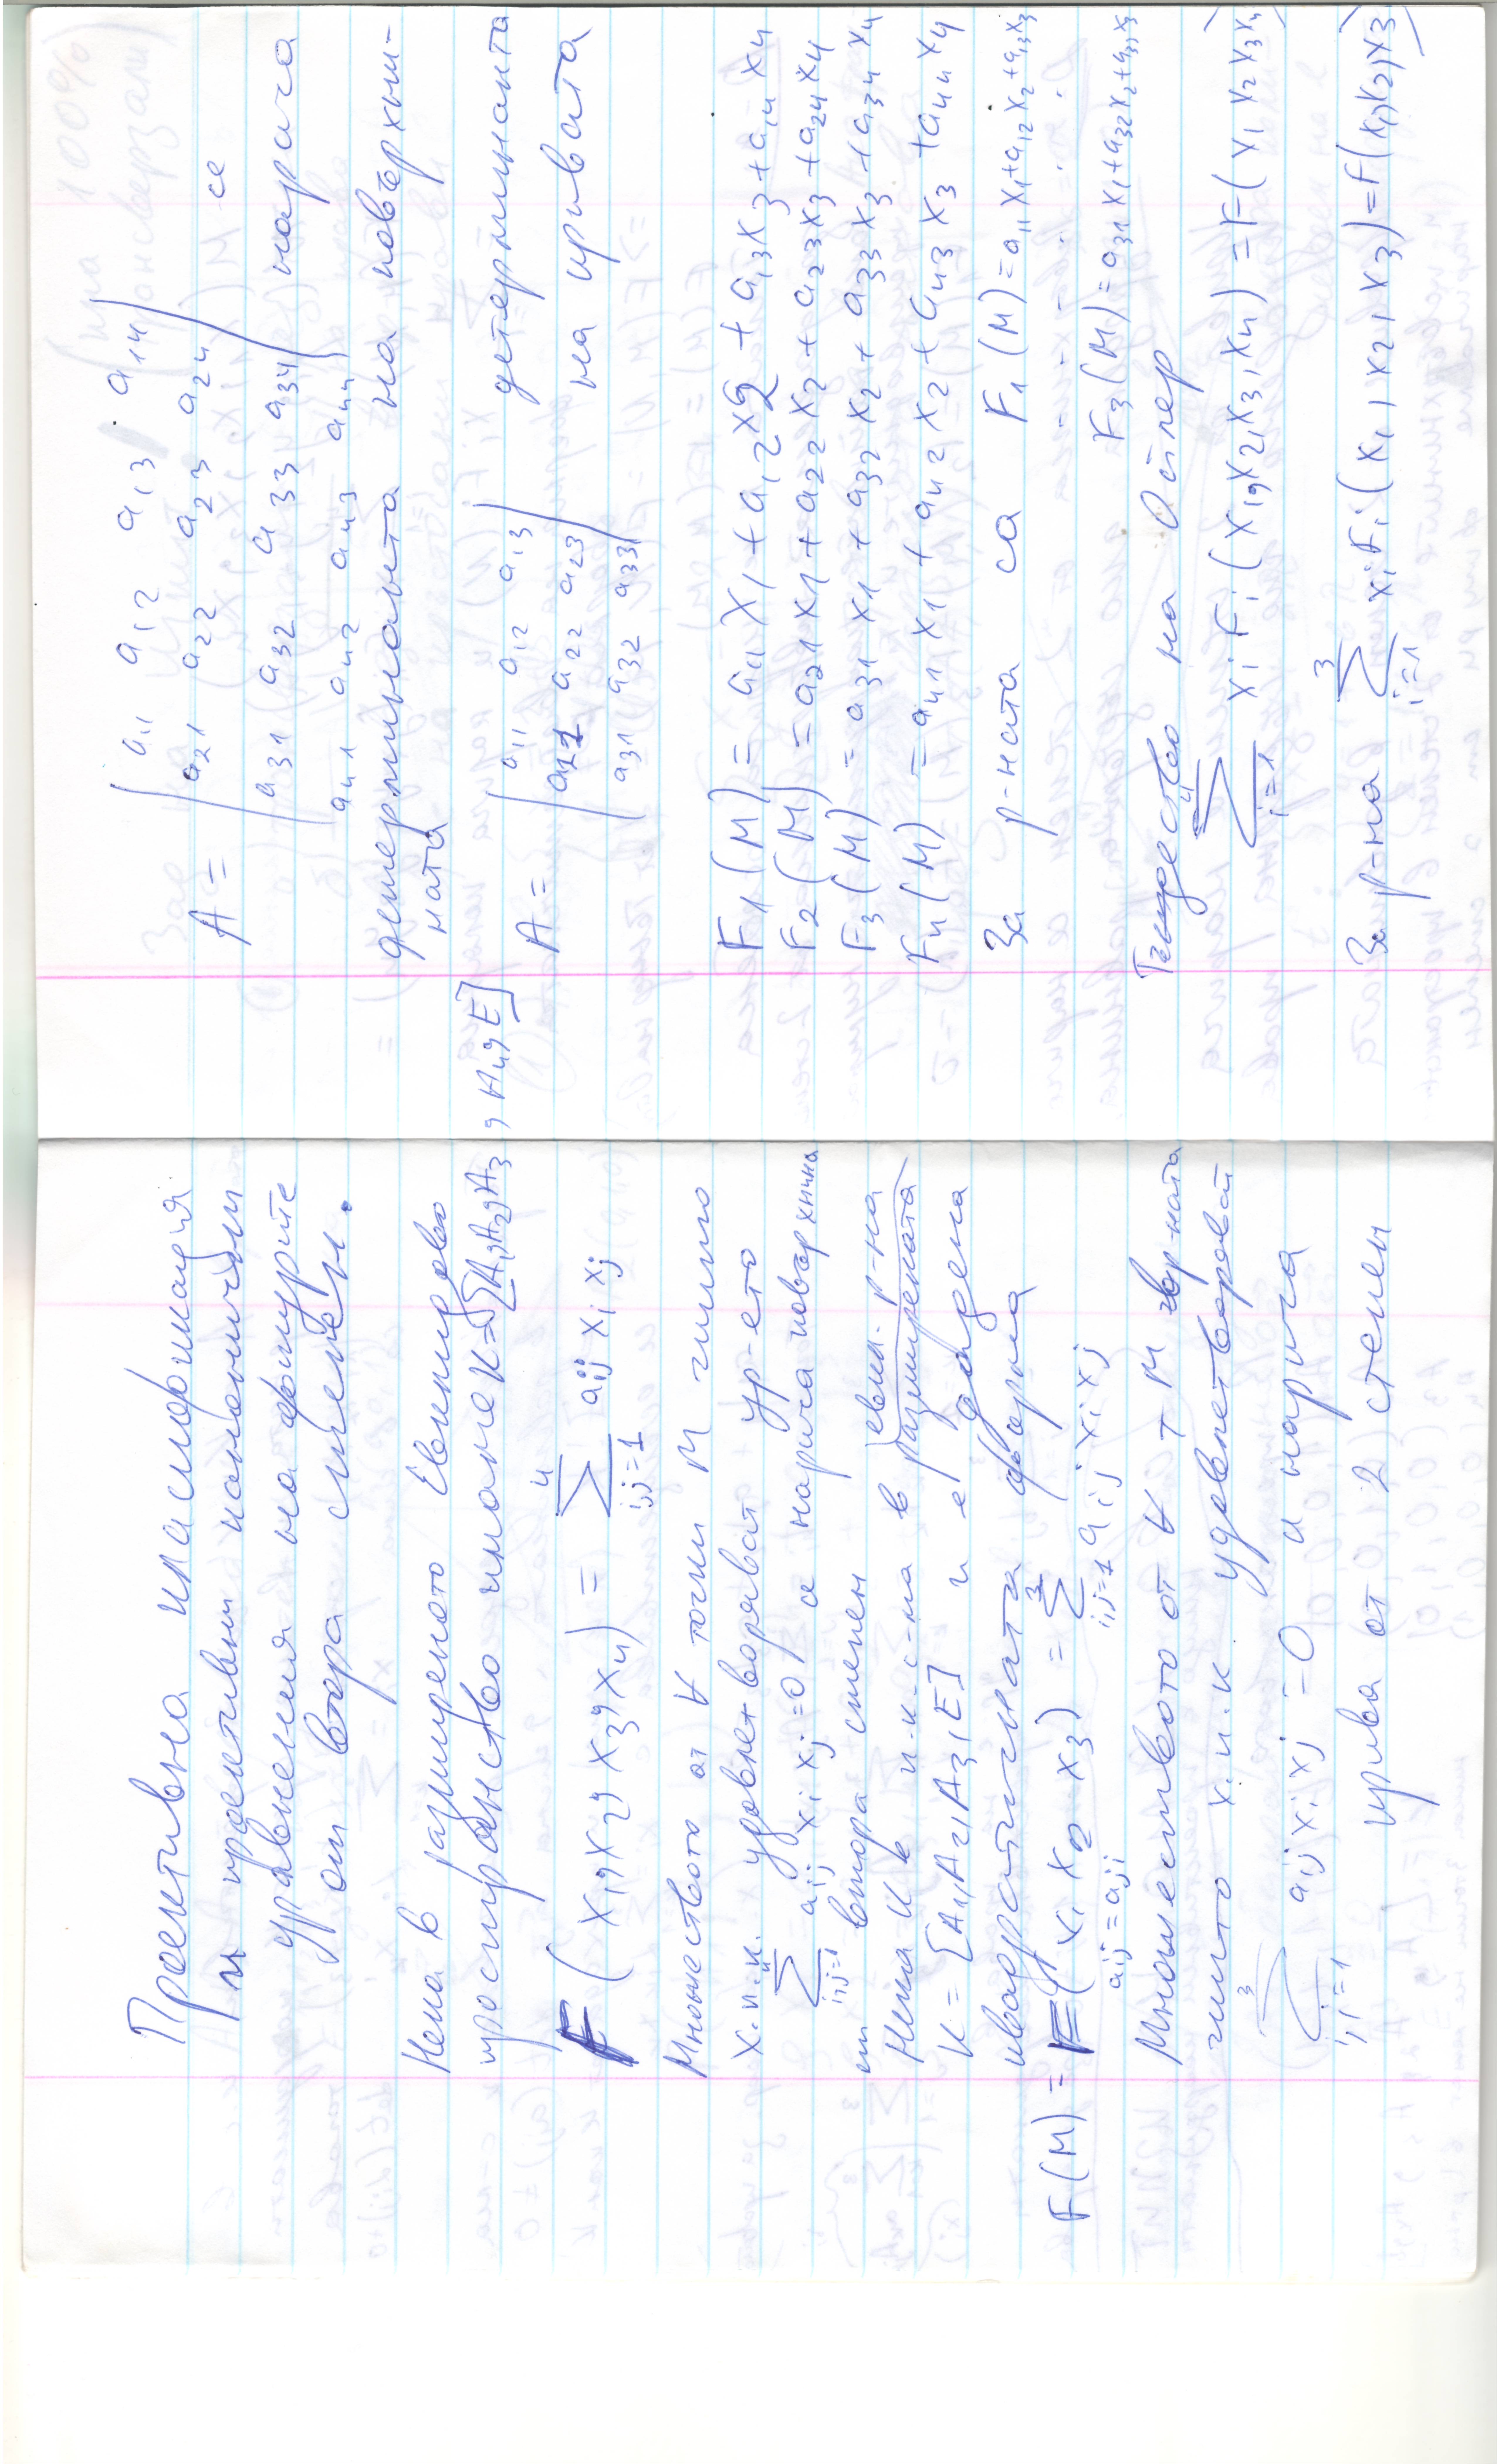 Проективна класификация
и проективни канонични
уравнения на фигурите
от втора степен.
Нека в разширеното Евклидово
пространство имаме K=[A1,A2,A3,A4,E]
F(x1,x2,x3,x4) = ∑ i,j=1 4 aij xi xj
Множеството от ∀ точки M чиито
х.п.к. удовлетворяват ур-ето
∑ i,j=1 4 aij xi xj=0 се нарича повърхнина
от втора степен
Нека K е п-к-с-ма в разширената евкл. р-на
K=[A1,A2,A3,E] и е дадена
квадратичната форма
F(M)=F(x1 x2 x3) = ∑ i,j=1 3 aij xi xj
aij=aji
Множеството от ∀ т M в р-ната
чиито х.п.к удовлетворяват
∑ i,j=1 3 aij xi xj=0 се нарича
крива от 2 степен
A = | a11 a12 a13 a14 |
| a21 a22 a23 a24 | се
| a31 a32 a33 a34 | нарича
a41 a42 a43 a44
детерминанта на повърхни-
ната
A = | a11 a12 a13 | детерминанта
| a21 a22 a23 |
| a31 a32 a33 | на кривата
F1(M) = a11 x1 + a12 x2 + a13 x3 + a14 x4
F2(M) = a21 x1 + a22 x2 + a23 x3 + a24 x4
F3(M) = a31 x1 + a32 x2 + a33 x3 + a34 x4
F4(M) = a41 x1 + a42 x2 + a43 x3 + a44 x4
За р-ната са F1(M)=a11 x1+a12 x2+a13 x3
. . . . .
F3(M)=a31 x1+a32 x2+a33 x3
Тъждество на Ойлер
∑ i=1 4 xi Fi(x1,x2,x3,x4)=F(x1 x2 x3 x4)
За р-на ∑ i=1 3 xi Fi(x1,x2,x3)=F(x1,x2,x3)